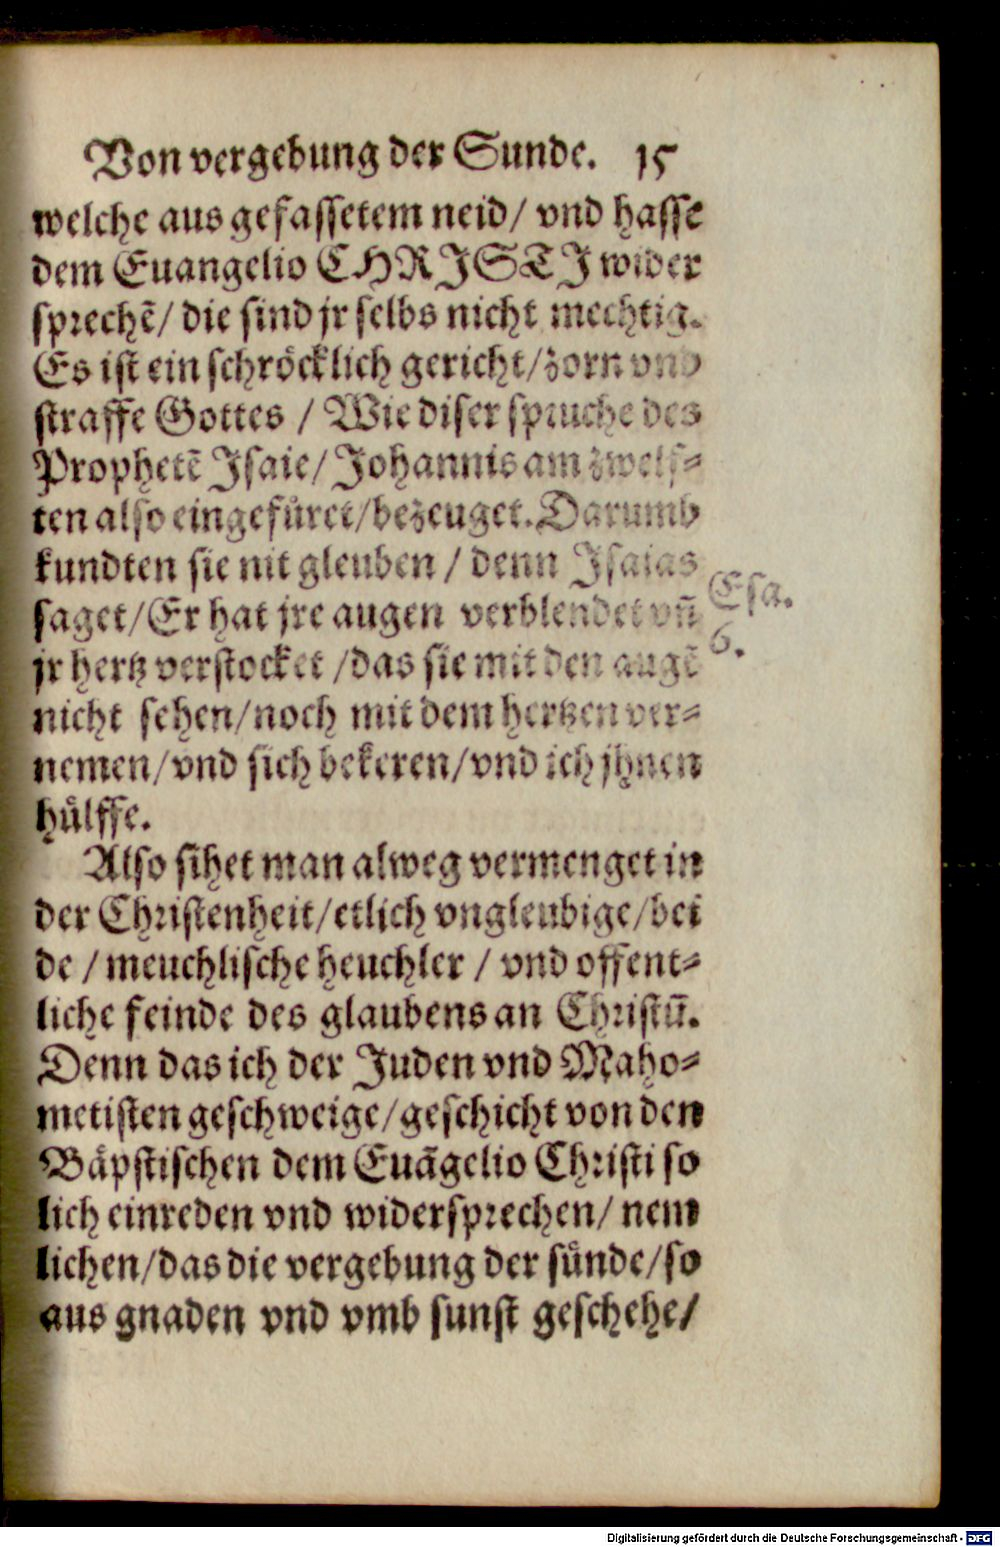 Von vergebung der Sunde. 15
welche aus gefassetem neid/ vnd hasse
dem Euangelio CHRISTI wider
sprechẽ/ die sind jr selbs nicht mechtig.
Es ist ein schröcklich gericht/zorn vnd
straffe Gottes / Wie diser spruche des
Prophetẽ Isaie/ Johannis am zwelf-
ten also eingefüret/bezeuget. Darumb
kundten sie nit gleuben / denn Isaias
saget/Er hat jre augen verblendet vñ
jr hertz verstocket /das sie mit den augẽ
nicht sehen/noch mit dem hertzen ver-
nemen/vnd sich bekeren/vnd ich jhnen
hülffe.
Esa.
6.
Also sihet man alweg vermenget in
der Christenheit/etlich vngleubige/bei
de / meuchlische heuchler / vnd offent-
liche feinde des glaubens an Christũ.
Denn das ich der Juden vnd Maho-
metisten geschweige/geschicht von den
Bäpstischen dem Euãgelio Christi so
lich einreden vnd widersprechen/ nem
lichen/das die vergebung der sünde/so
aus gnaden vnd vmb sunst geschehe/
Digitalisierung gefördert durch die Deutsche Forschungsgemeinschaft - DFG